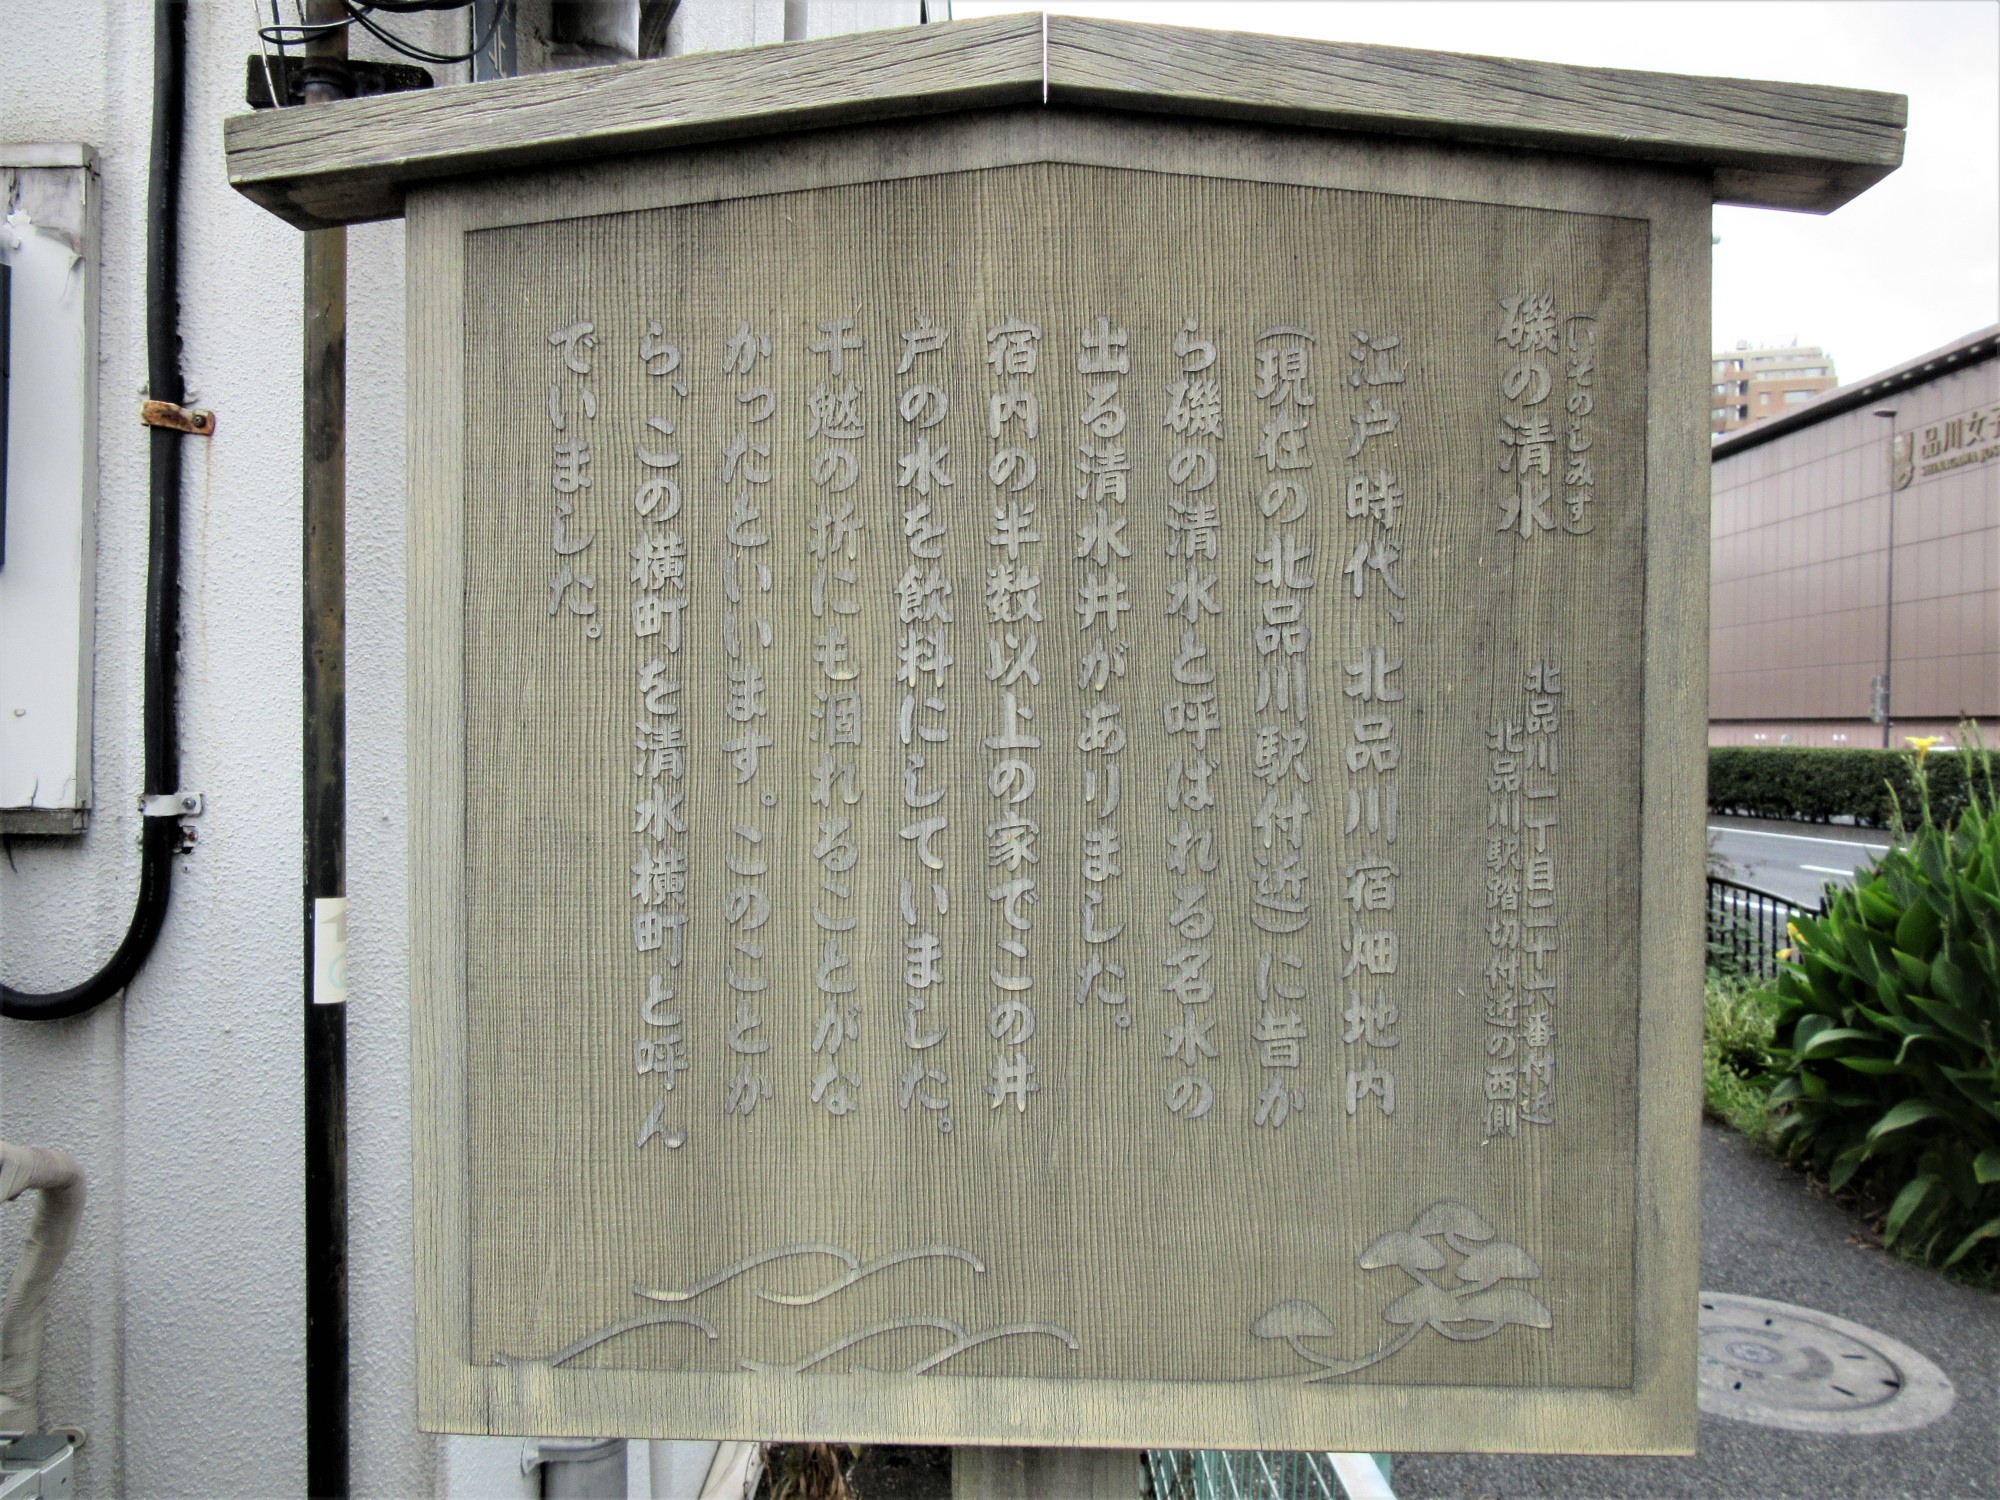 (いそのしみず)
磯の清水
北品川一丁目二十六番付近
北品川駅踏切付近の西側
江戸時代、北品川宿畑地内
(現在の北品川駅付近)に昔か
ら磯の清水と呼ばれる名水の
出る清水井がありました。
宿内の半数以上の家でこの井
戸の水を飲料にしていました。
干魃の折にも涸れることがな
かったといいます。このことか
ら、この横町を清水横町と呼ん
でいました。
品川女子
SHINAGAWA JOS